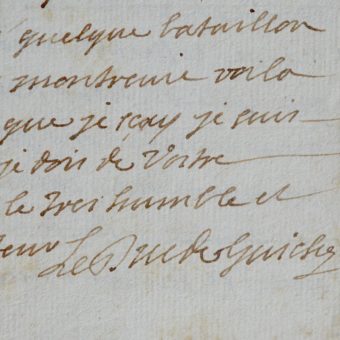 quelque bataillon
montreuie voila
que je sçay je suis
je dois de Vostre
le Tres humble et
teur Le Duc de Guiche